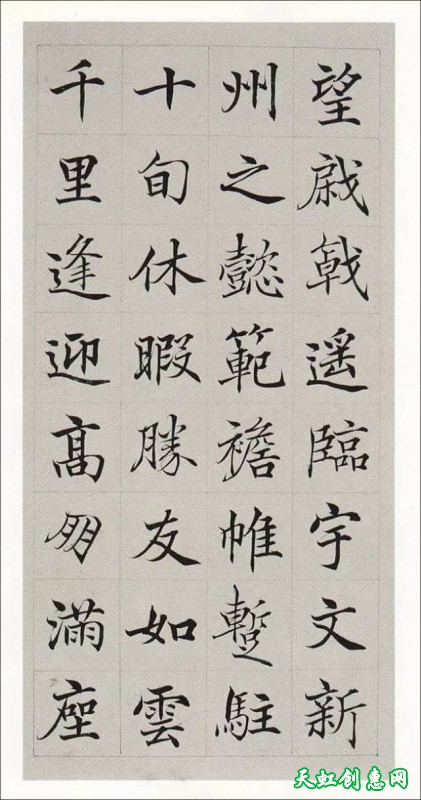 望戟遥臨宇文新
州之懿範襜帷蹔駐
十旬休暇勝友如雲
千里逢迎髙朋滿座
天虹创意网